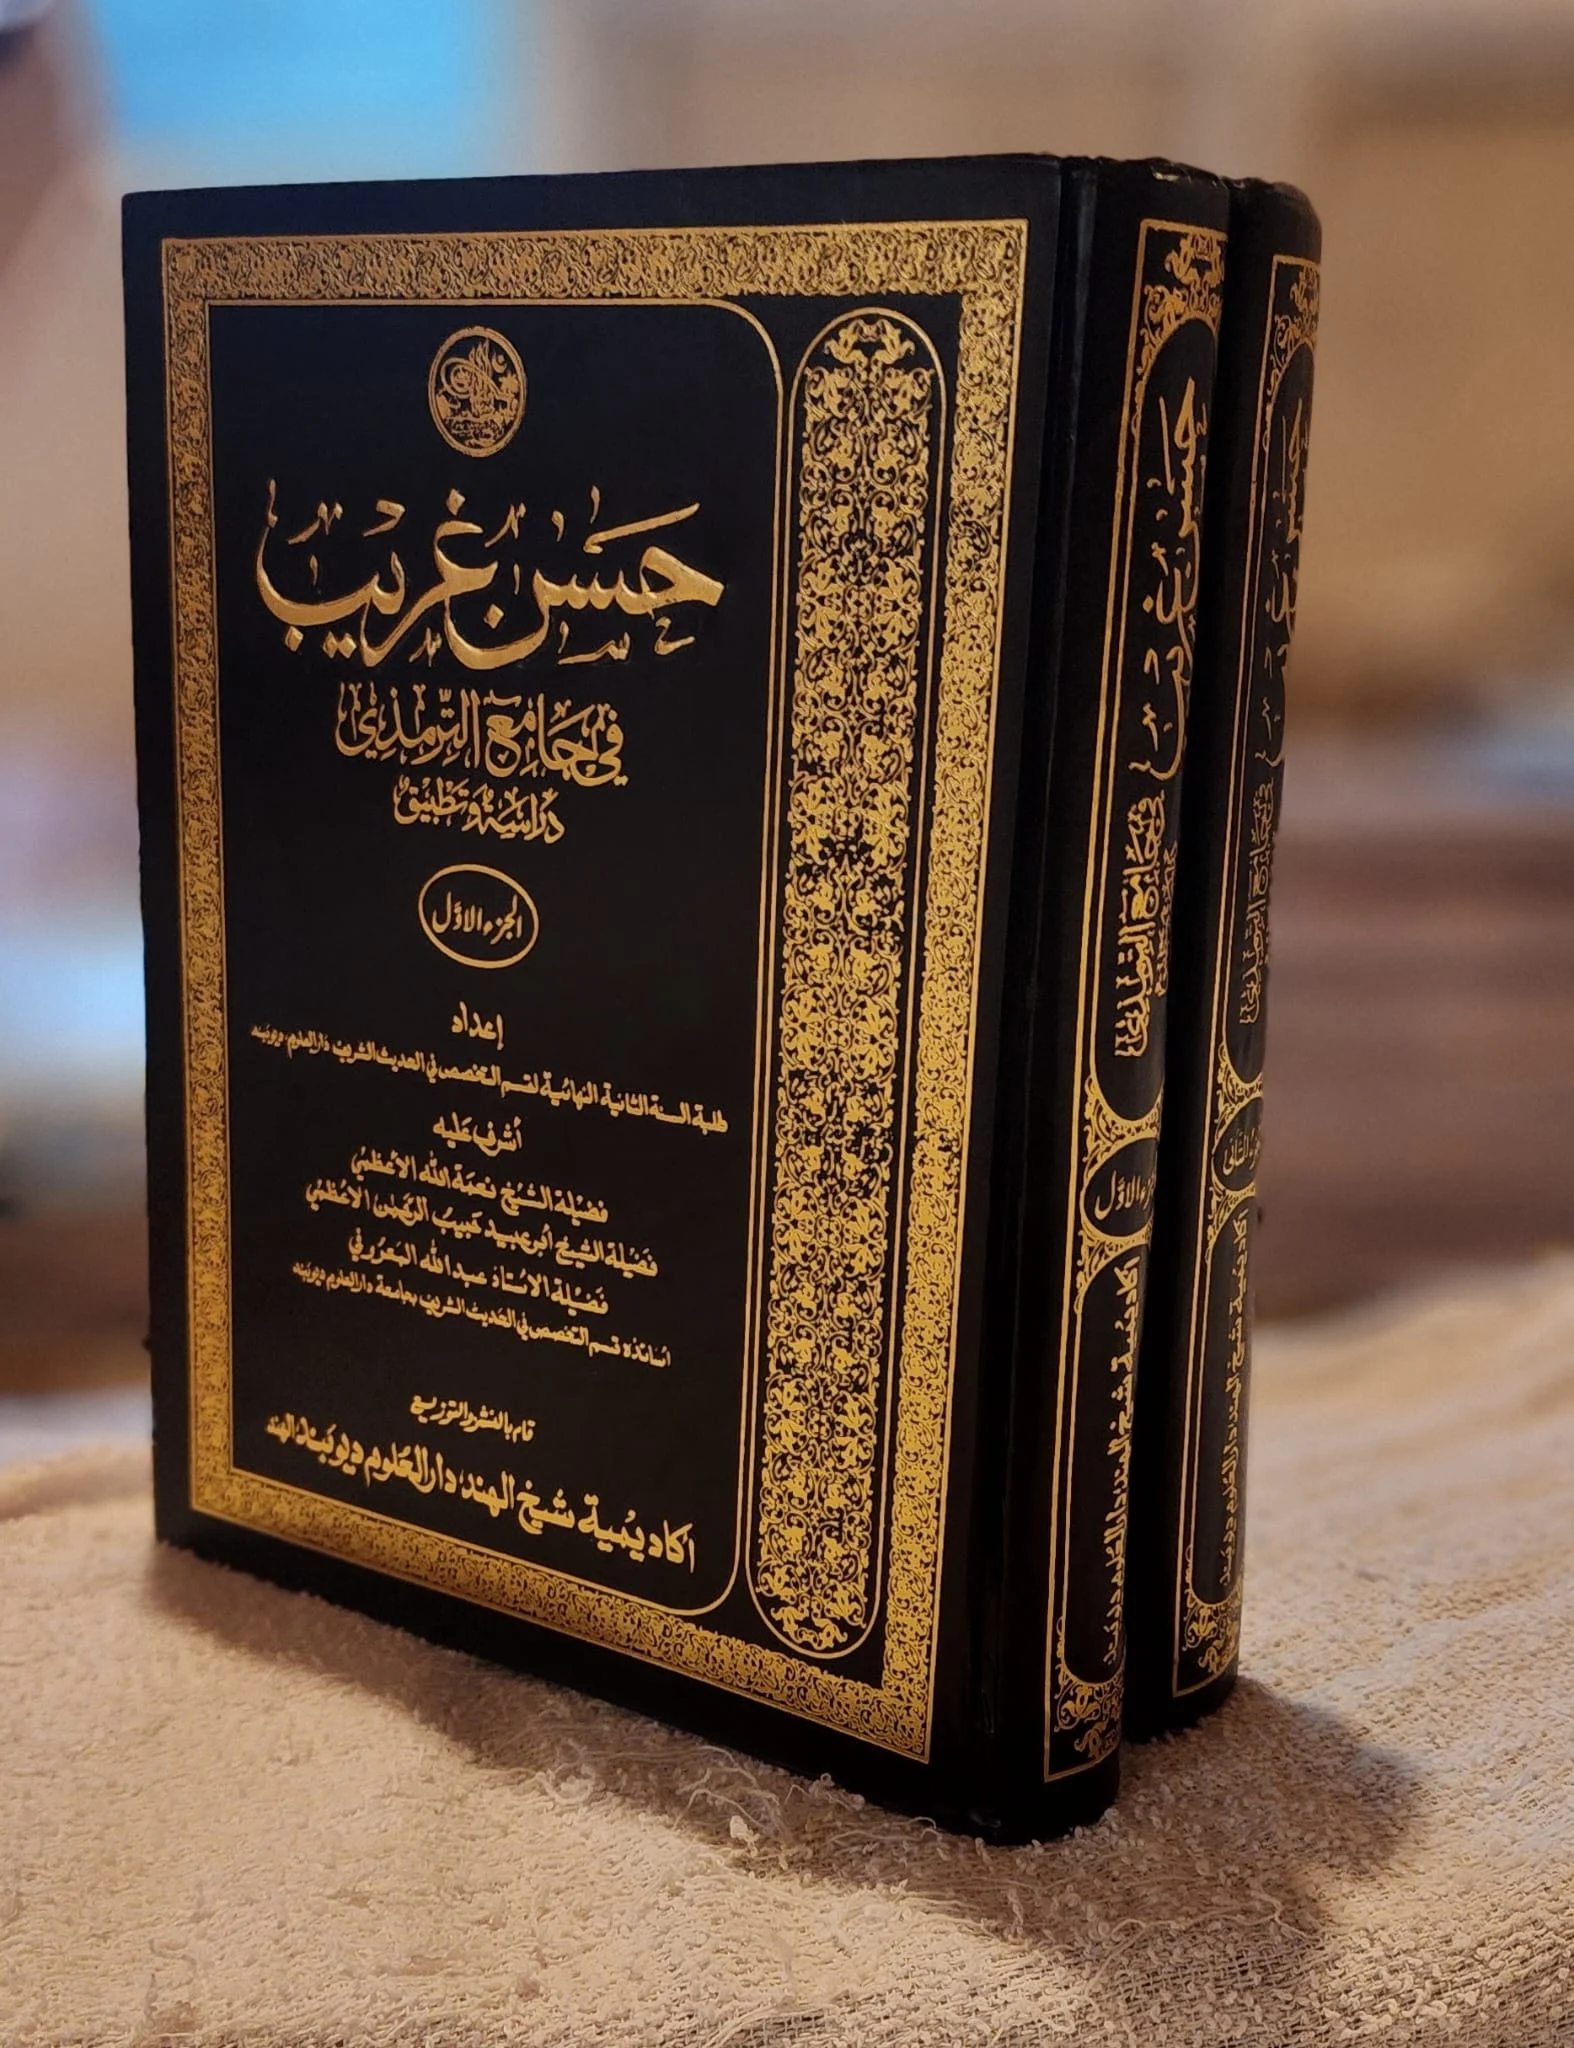 حَسَن غَرِيب
في جَامِع التِّرمِذي
دِرَاسَة وَتَطْبِيْق
الجزء الاوَّل
إعداد
طلبة السنة الثانية النهائية لقسم التخصص في الحديث الشريف دار العلوم، ديوبند
أشرف عليه
فضيلة الشيخ نعمة الله الأعظمي
فضيلة الشيخ أبو عبيد حبيب الرحمن الأعظمي
فضيلة الاستاذ عبد الله المعروفي
اساتذه قسم التخصص في الحديث الشريف بجامعة دار العلوم ديوبند
قام بالنشر والتوزيع
اكاديمية شيخ الهند، دار العلوم ديوبند، الهند
حَسَن غَرِيب
في جَامِع التِّرمِذي
الجزء الاوَّل
اكاديمية شيخ الهند، دار العلوم ديوبند
حَسَن غَرِيب
في جَامِع التِّرمِذي
الجزء الثَّاني
اكاديمية شيخ الهند، دار العلوم ديوبند